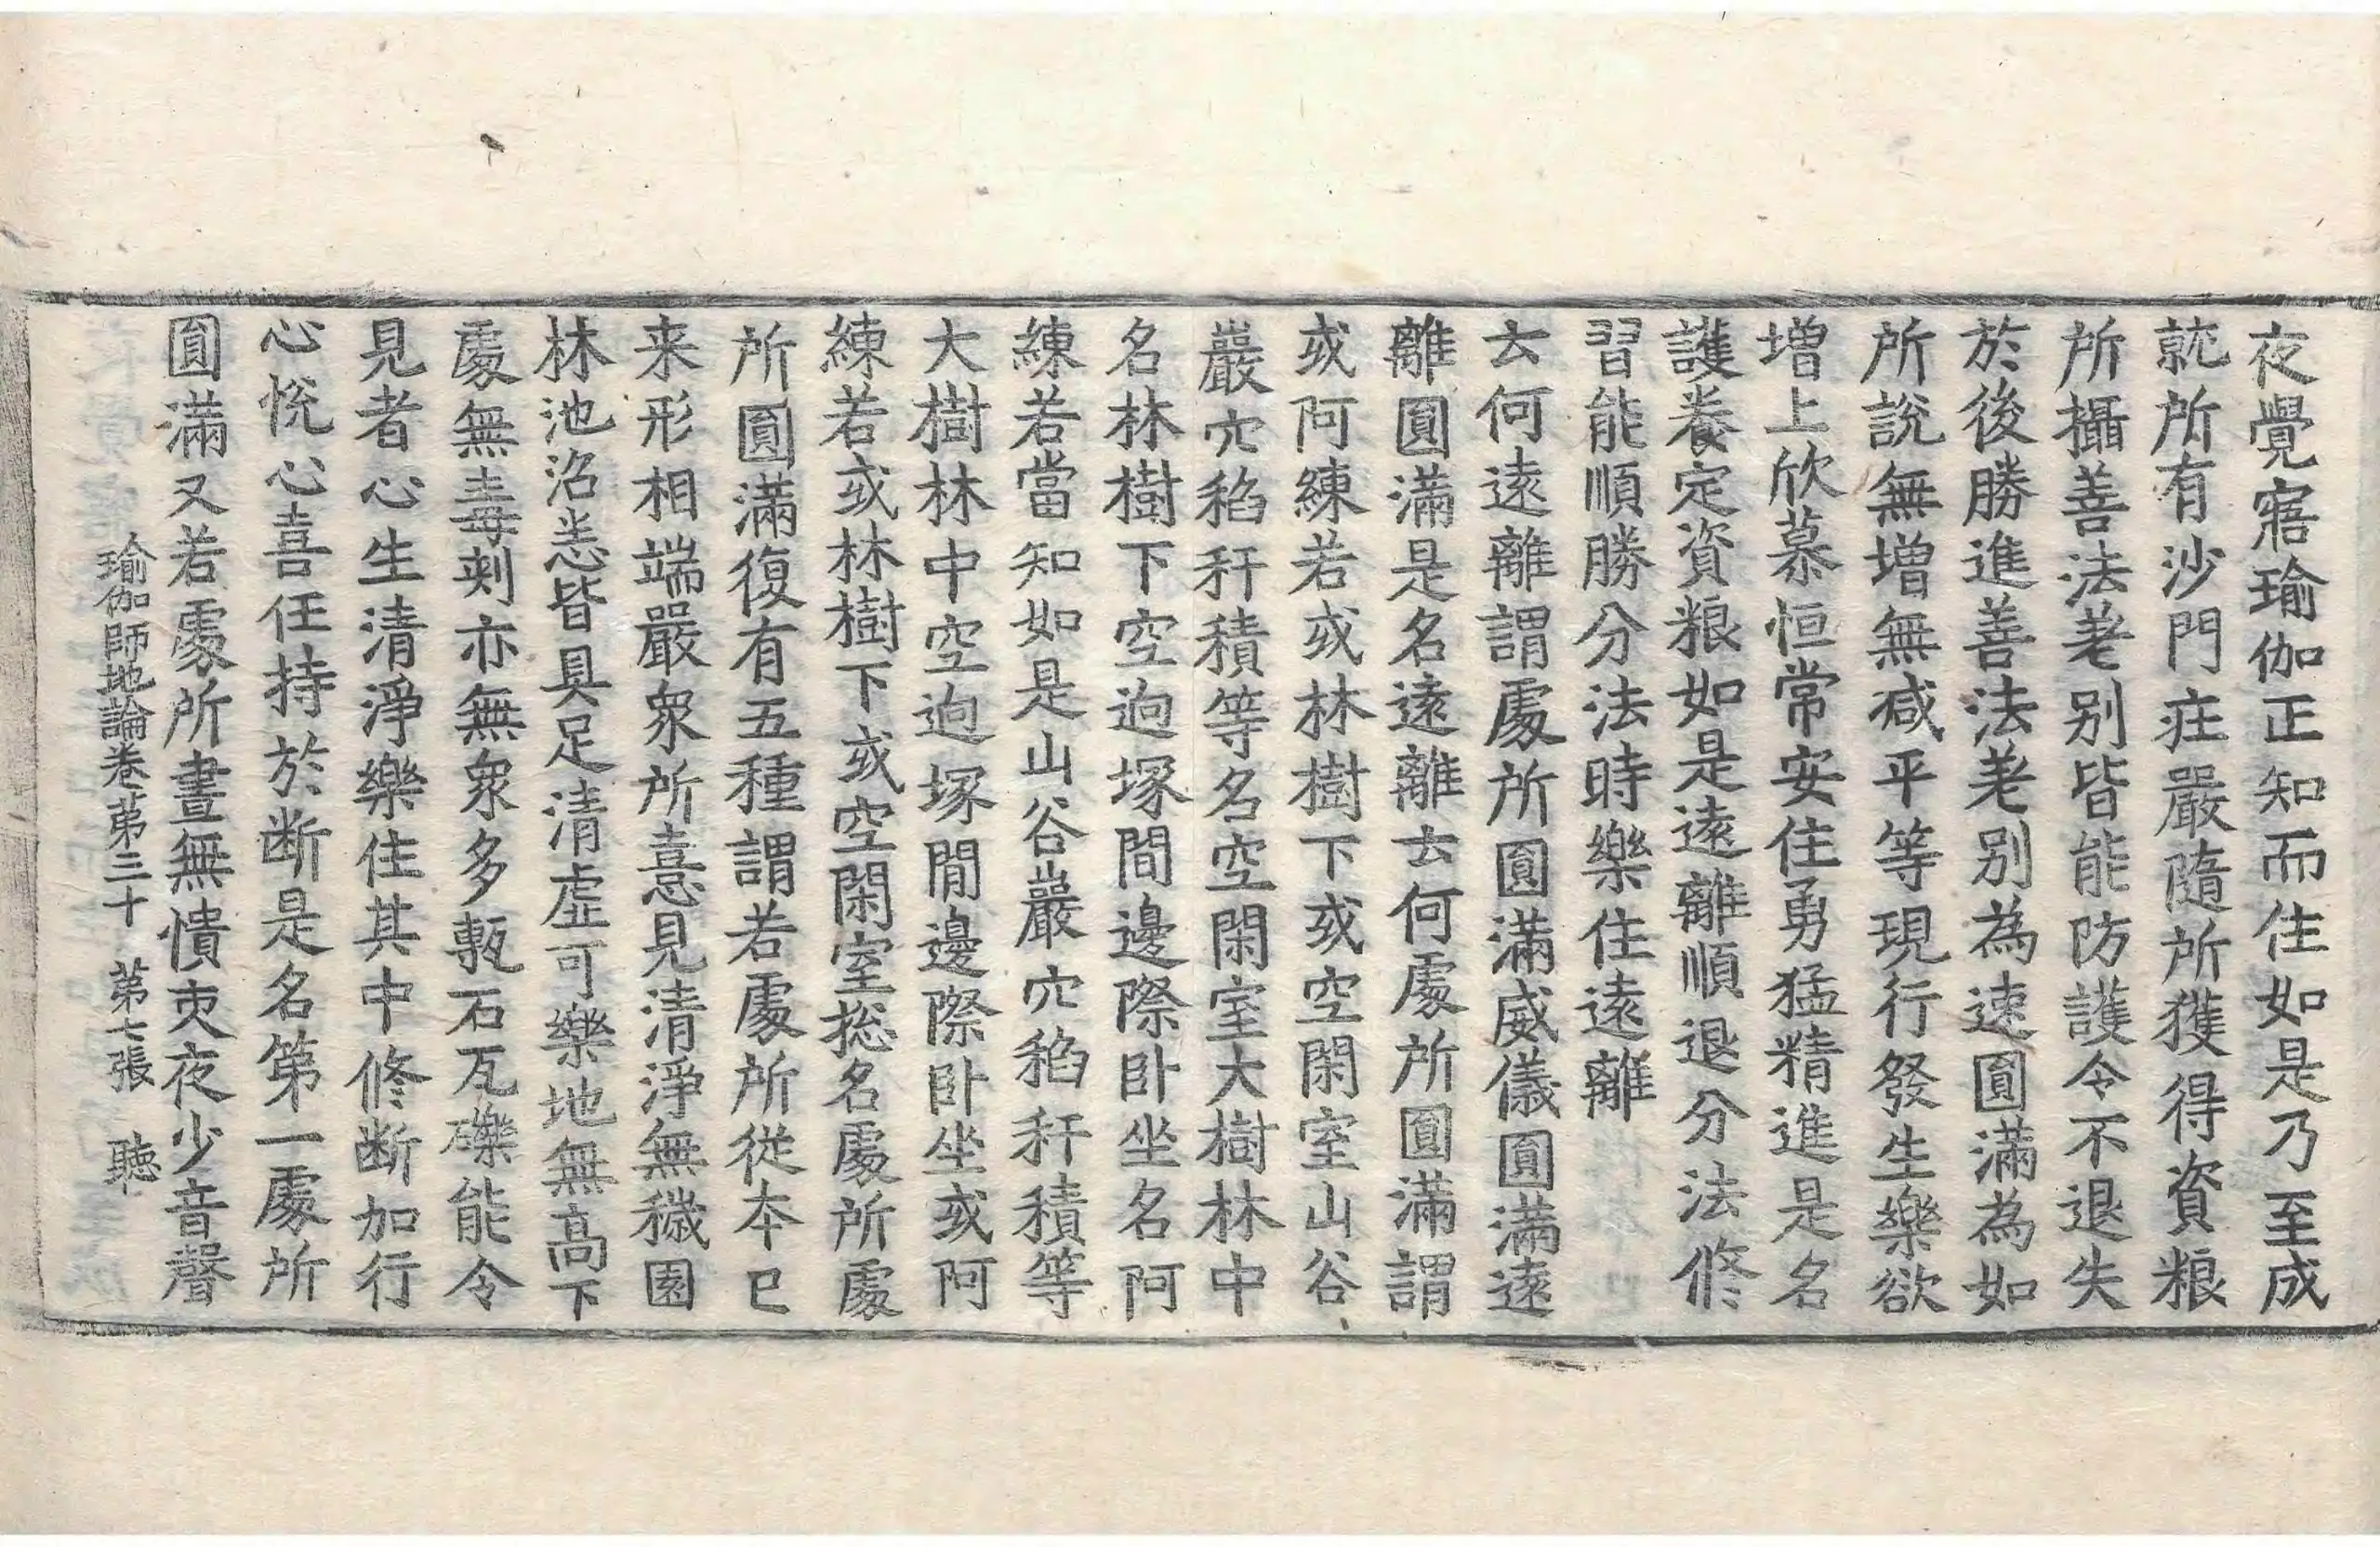 夜覺寤瑜伽正知而住如是乃至成
就所有沙門莊嚴隨所獲得資粮
所攝善法差别皆能防護令不退失
於後勝進善法差别為速圓滿為如
所說無增無减平等現行發生樂欲
增上欣慕恒常安住勇猛精進是名
護養定資粮如是遠離順退分法修
習能順勝分法時樂住遠離
云何遠離謂處所圓滿威儀圓滿遠
離圓滿是名遠離云何處所圓滿謂
或阿練若或林樹下或空閑室山谷
巖穴稻稈積等名空閑室大樹林中
名林樹下空逈塚間邊際卧坐名阿
練若當知如是山谷巖穴稻稈積等
大樹林中空逈塚間邊際卧坐或阿
練若或林樹下或空閑室揔名處所處
所圓滿復有五種謂若處所從本已
来形相端嚴衆所憙見清淨無穢園
林池沼悉皆具足清虛可樂地無高下
處無毒刺亦無衆多甎石瓦礫能令
見者心生清淨樂住其中修断加行
心悅心喜任持於断是名第一處所
圓滿又若處所晝無憒夾夜少音聲
瑜伽師地論卷第三十 第七張 聴